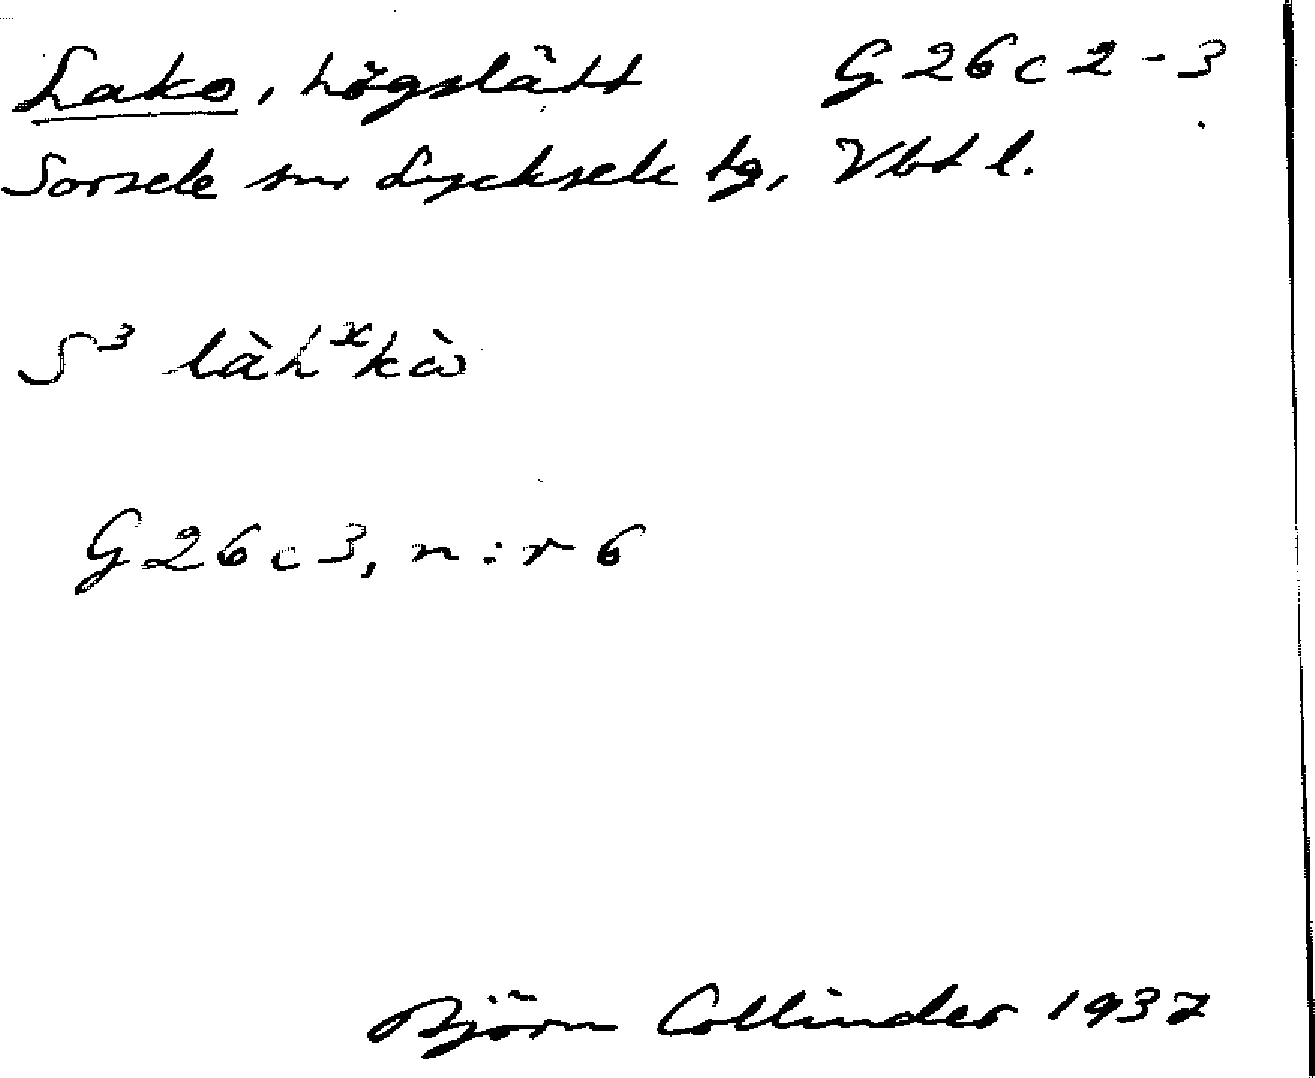 Lako, högslätt G26c2-3
Sorsele sn. Lycksele tg, Vbt l.
S³ làhˣkɷ̀
G26c3, n:r 6
Björn Collinder 1937